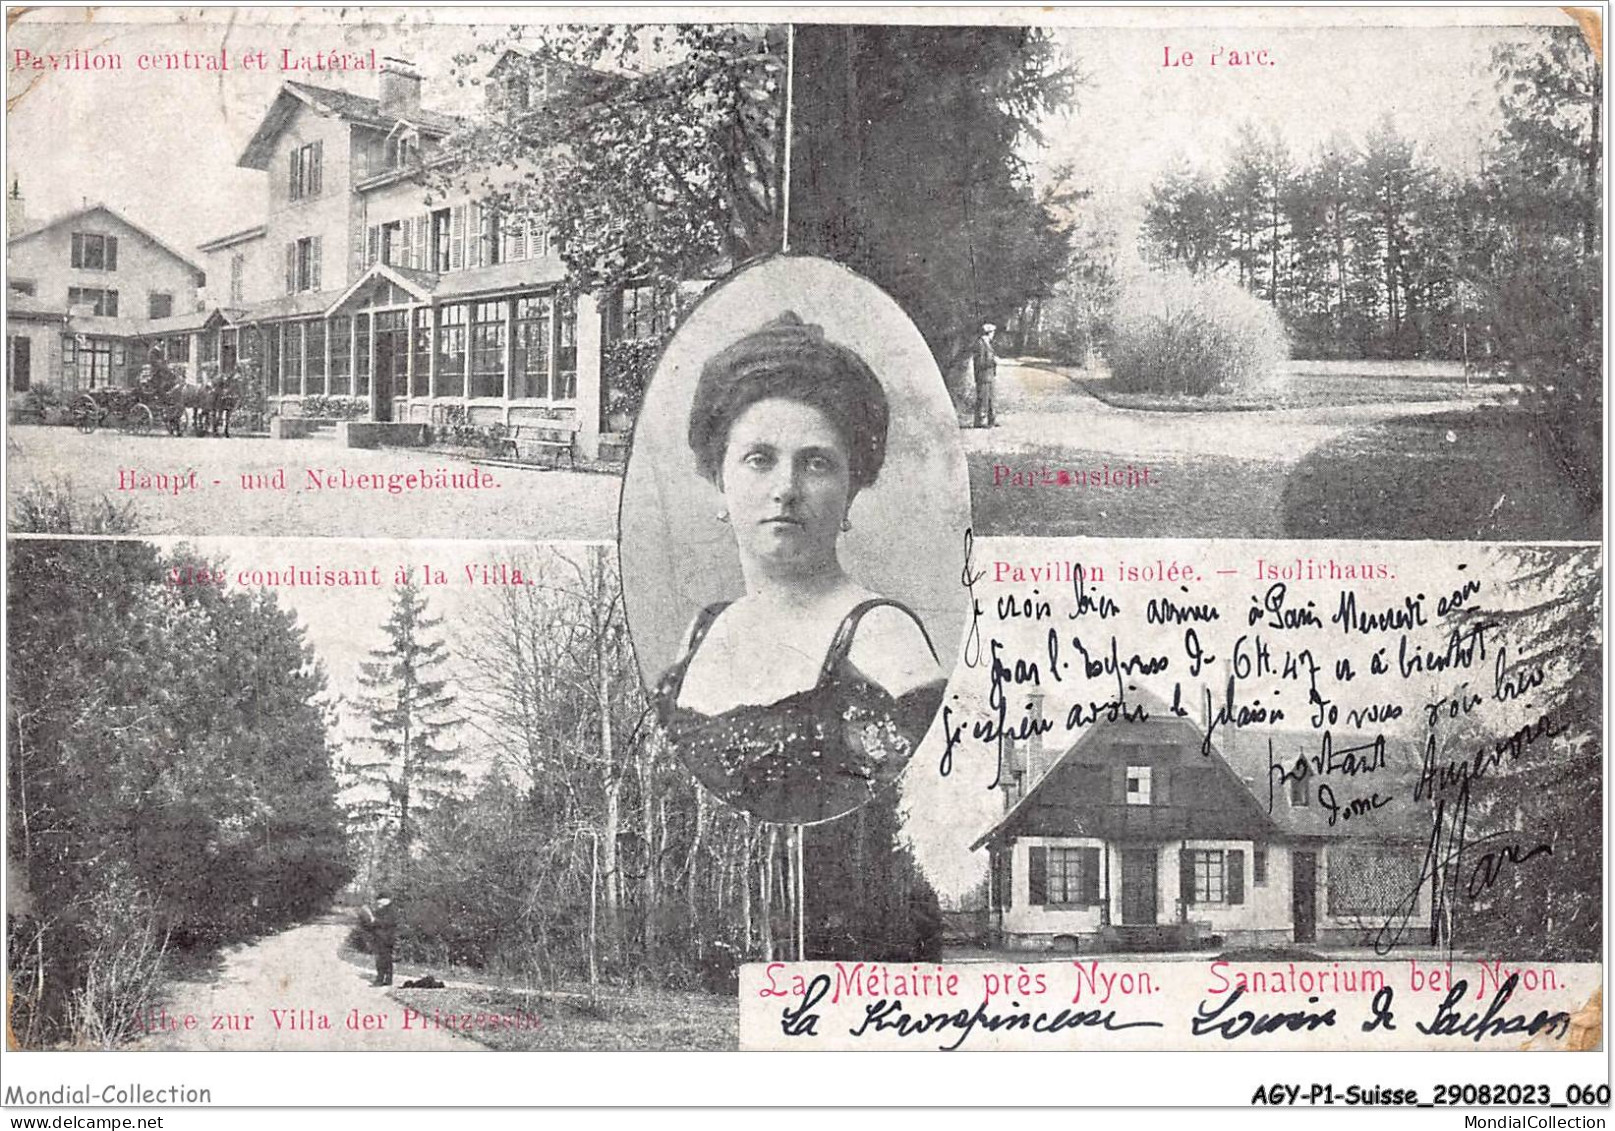 Pavillon central et Latéral.
Le Parc.
Haupt - und Nebengebäude.
Parkansicht.
Allée conduisant à la Villa.
Pavillon isolée. — Isolirhaus.
Je crois bien arriver à Paris Mercredi soir
par l. Express de 6H.47 et à bientôt
j'espère avoir le plaisir de vous voir bien
portant
donc Aurevoir
Allee zur Villa der Prinzessin
La Métairie près Nyon. Sanatorium bei Nyon.
La Kronprincesse Louise de Sachsen
Mondial-Collection
AGY-P1-Suisse_29082023_060
MondialCollection.com
MondialCollection